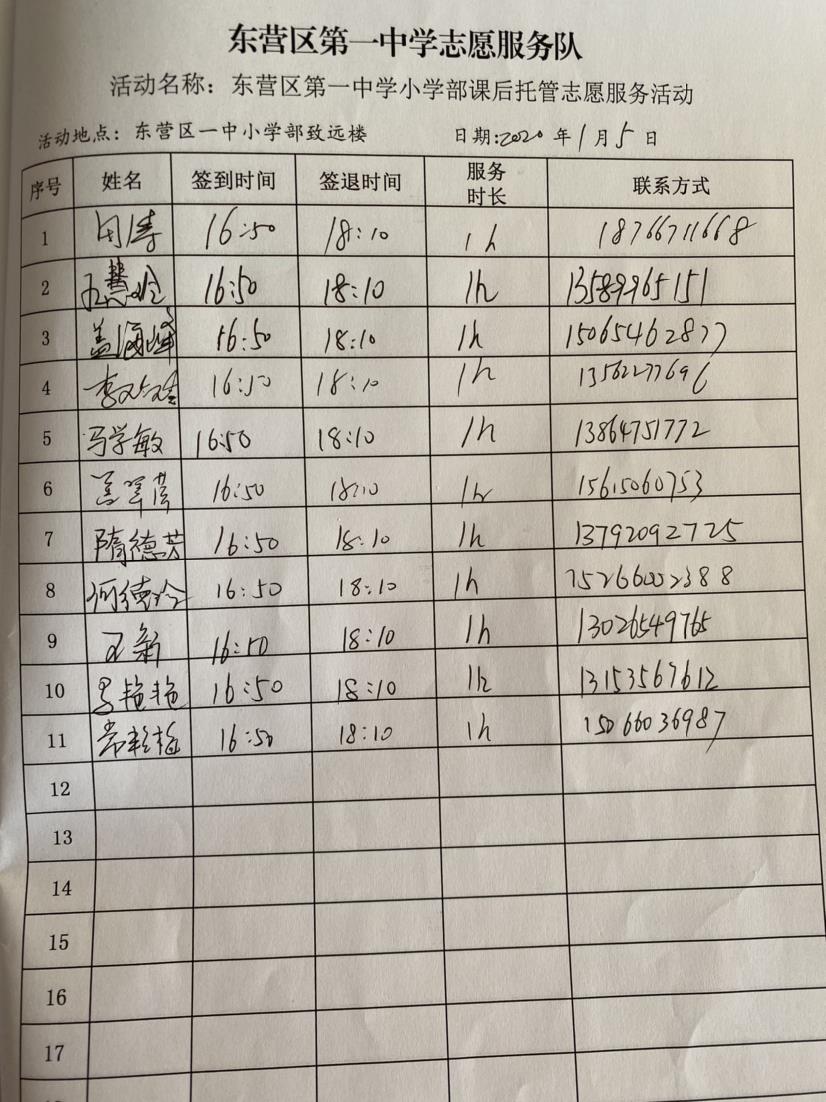 东营区第一中学志愿服务队
活动名称：东营区第一中学小学部课后托管志愿服务活动
活动地点：东营区一中小学部致远楼 日期:2020年1月5日
序号 姓名 签到时间 签退时间 服务时长 联系方式
1 16:50 18:10 1h 18766711668
2 16:50 18:10 1h 13589965151
3 盖海峰 16:50 18:10 1h 15065462877
4 16:50 18:10 1h 13562277696
5 冯学敏 16:50 18:10 1h 13864751772
6 16:50 18:10 1h 15615060753
7 隋德芳 16:50 18:10 1h 13792092725
8 何德玲 16:50 18:10 1h 15266002388
9 王新 16:50 18:10 1h 13026549765
10 马艳艳 16:50 18:10 1h 13153567612
11 常彩梅 16:50 18:10 1h 15066036987
12
13
14
15
16
17